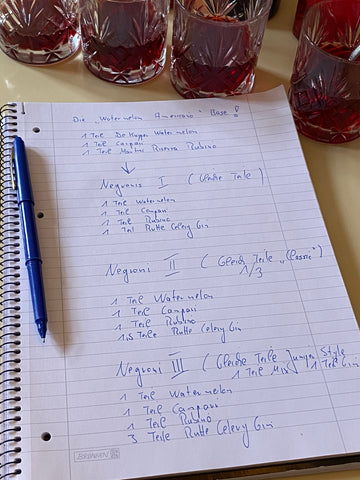 Die „Watermelon Americano" Base !
1 Teil De Kuyper Watermelon
1 Teil Campari
1 Teil Martini Riserva Rubino
Negronis I (Gleiche Teile)
1 Teil Watermelon
1 Teil Campari
1 Teil Rubino
1 Teil Rutte Celery Gin
Negroni II (Gleich Teile „Classic")
1/3
1 Teil Watermelon
1 Teil Campari
1 Teil Rubino
1,5 Teile Rutte Celery Gin
Negroni III (Gleiche Teile Style
1 Teil Mix 1 Teil Gin
1 Teil Watermelon
1 Teil Campari
1 Teil Rubino
3 Teile Rutte Celery Gin
BRUNNEN